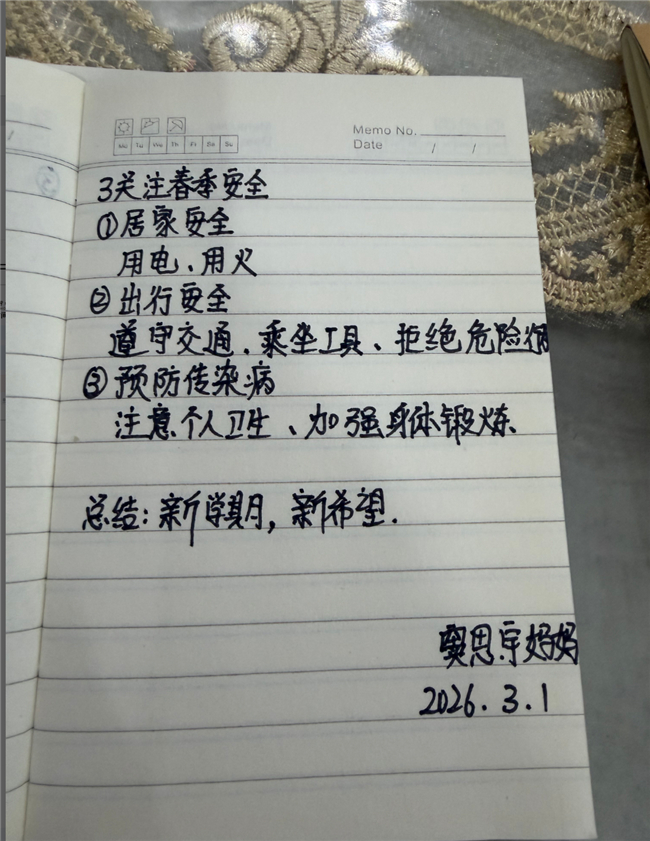 Memo No.
Mo Tu We Th Fr Sa Su
Date / /
3关注春季安全
①居家安全
用电、用火
②出行安全
遵守交通、乘坐工具、拒绝危险
③预防传染病
注意个人卫生、加强身体锻炼、
总结:新学期,新希望.
思宇妈妈
2026.3.1